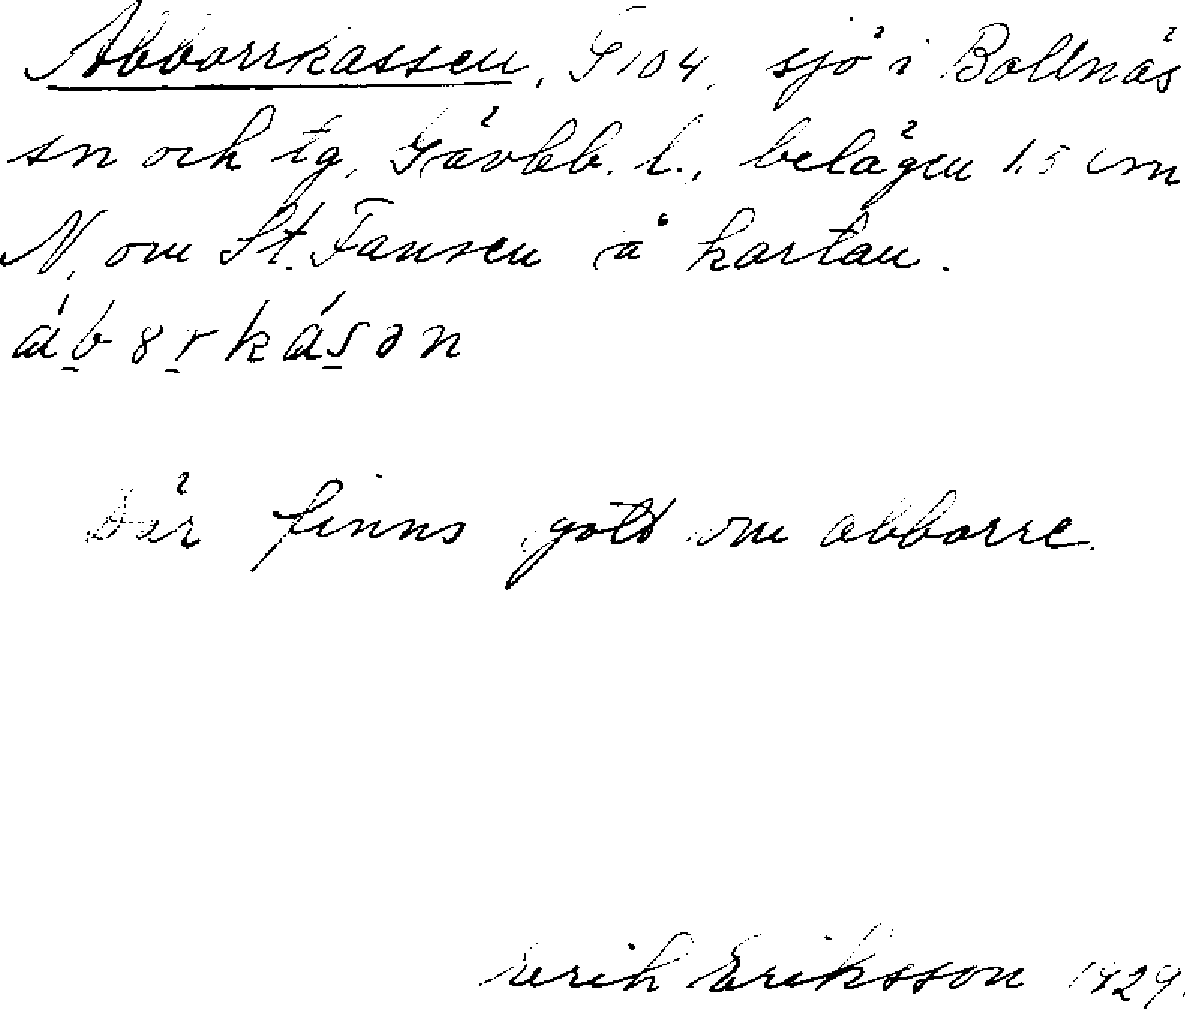 Abborrkassen, G 104, sjö i Bollnäs
sn och tg, Gävleb. l., belägen 1.5 cm
N. om St. Fansen å kartan.
áb8rkásən
Där finns gott om abborre.
Erik Eriksson 1929.